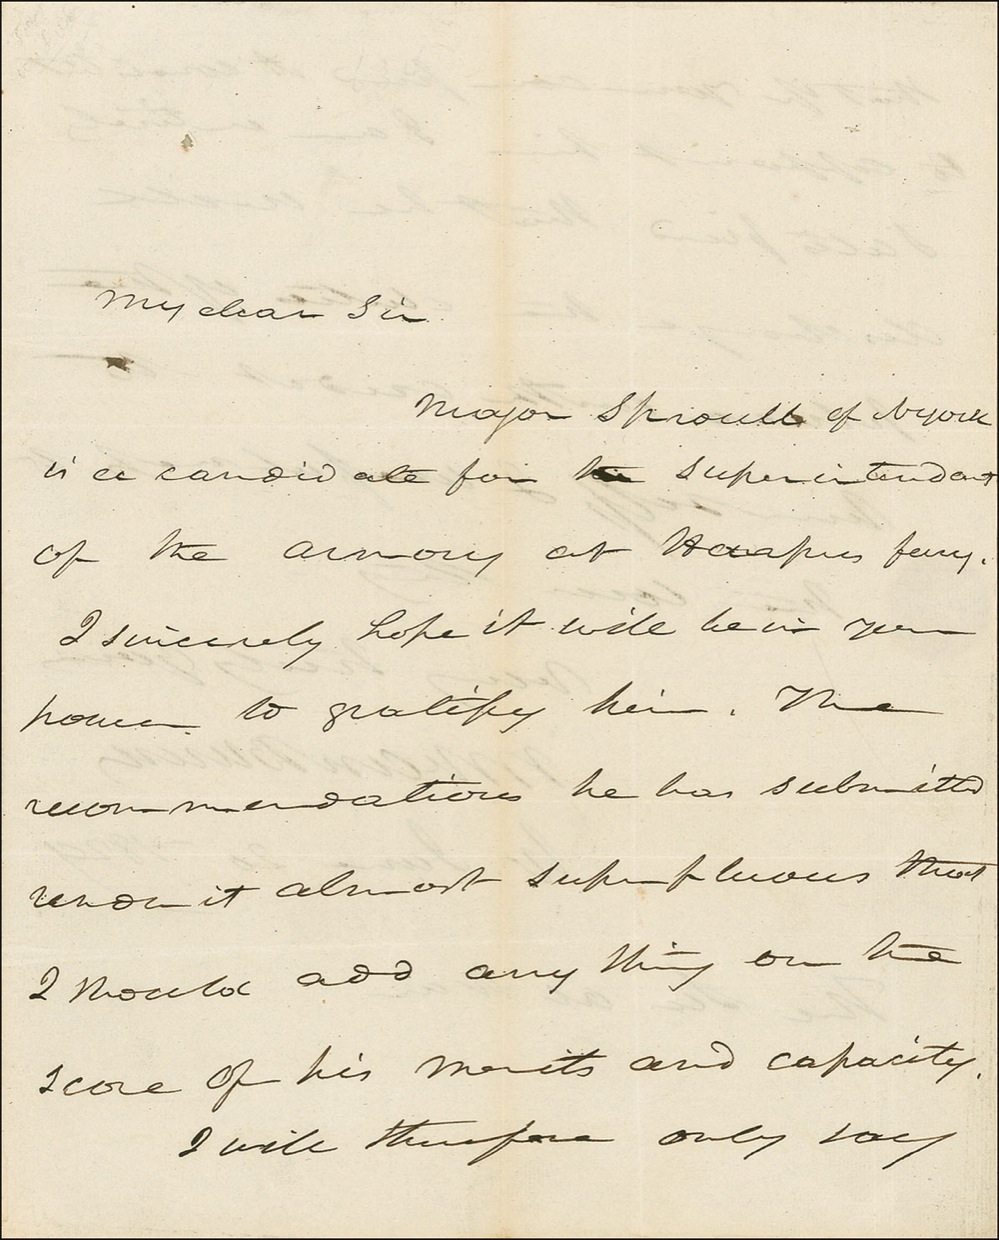 My dear Sir
Major Sproull of NYork
is a candidate for the Superintendant
of the armory at Harpers ferry.
I sincerely hope it will be in your
power to gratify him. The
recommendations he has submitted
render it almost superfluous that
I should add any thing on the
score of his merits and capacity.
I will therefore only say